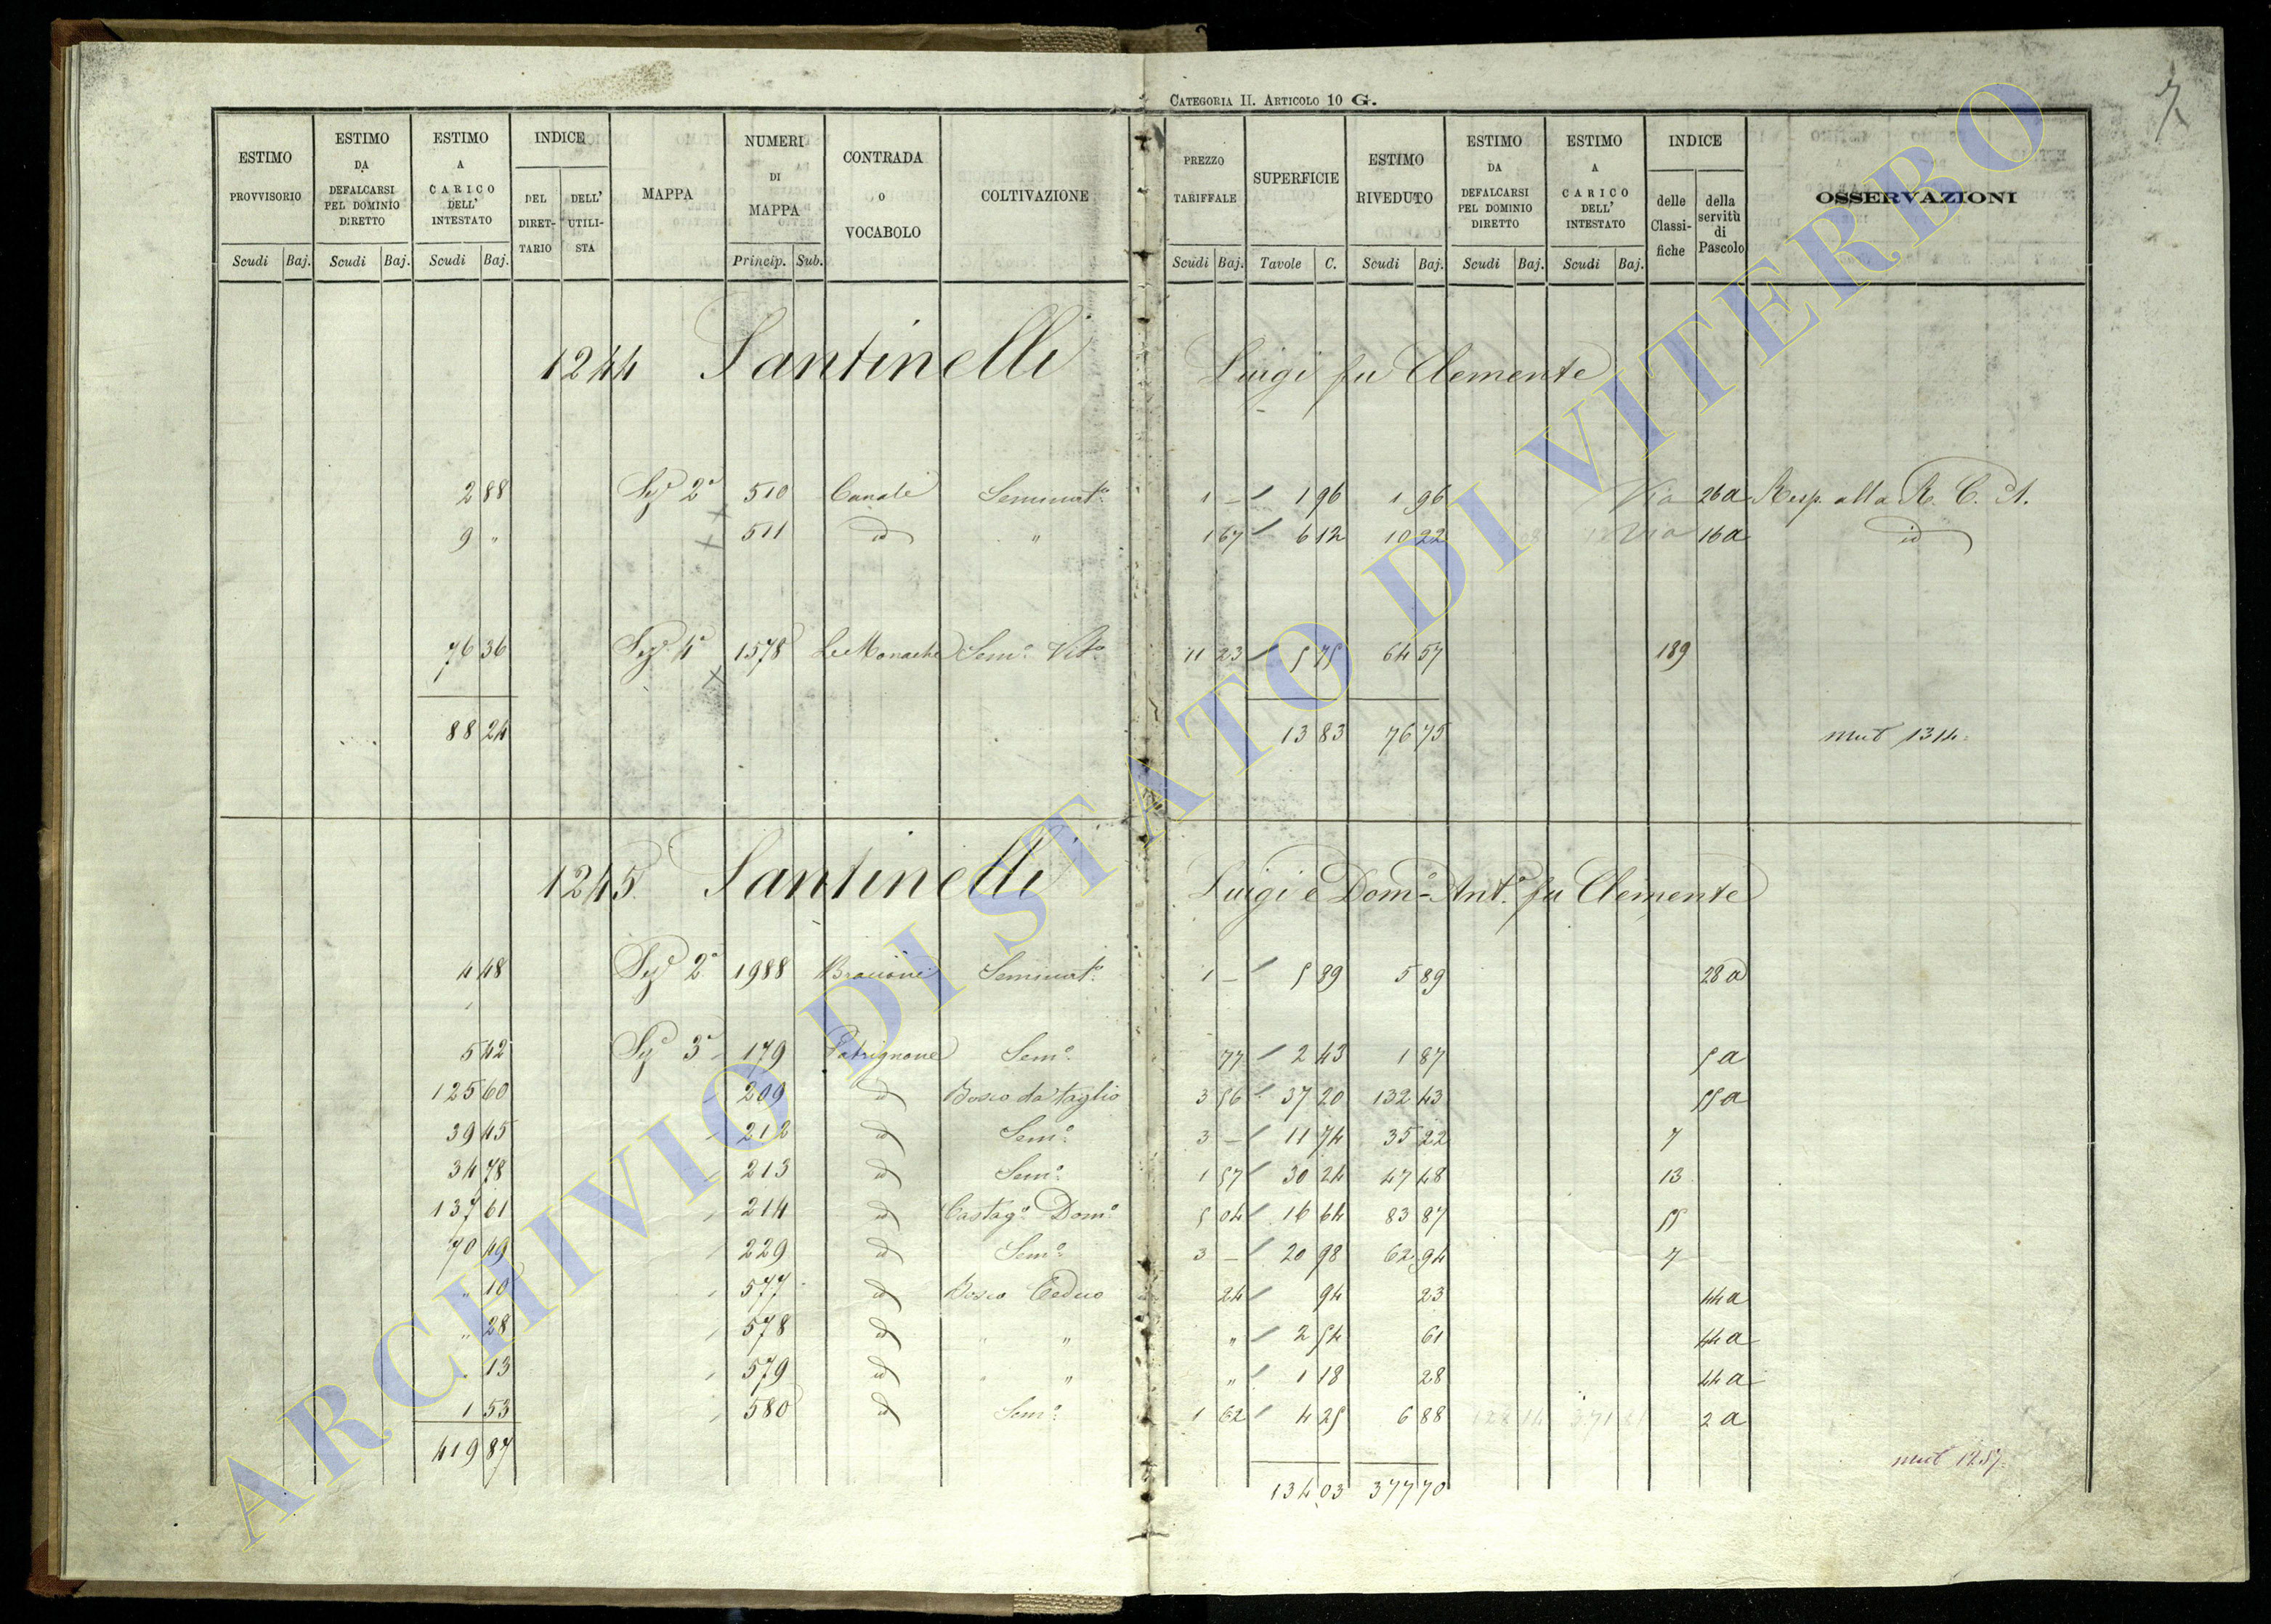 CATEGORIA II. ARTICOLO 10 G.
7
ESTIMO PROVVISORIO | ESTIMO DA DEFALCARSI PEL DOMINIO DIRETTO | ESTIMO A CARICO DELL' INTESTATO | INDICE | MAPPA | NUMERI DI MAPPA | CONTRADA o VOCABOLO | COLTIVAZIONE | PREZZO TARIFFALE | SUPERFICIE | ESTIMO RIVEDUTO | ESTIMO DA DEFALCARSI PEL DOMINIO DIRETTO | ESTIMO A CARICO DELL' INTESTATO | INDICE | OSSERVAZIONI
DEL DIRETTARIO | DELL' UTILISTA | delle Classifiche | della servitù di Pascolo
Scudi Baj. | Scudi Baj. | Scudi Baj. | Princip. Sub. | Scudi Baj. | Tavole C. | Scudi Baj. | Scudi Baj. | Scudi Baj.
1244 Santinelli Luigi fu Clemente
2 88 Sez.e 2a 510 Canale Seminat.o 1 – 1 96 1 96 Via 26a Resp. alla R. C. A.
9 " 511 id " 1 67 6 12 10 22 Via 16a id
76 36 Sez.e 4a 1578 Le Monache Sem.o Vit.o 11 23 5 75 64 57 189
88 24 13 83 76 75 mut 1314
1245 Santinelli Luigi e Dom.o Ant.o fu Clemente
4 48 Sez.e 2a 1988 Seminat.o 1 – 5 89 5 89 28a
5 42 Sez.e 3a 179 Patrignone Sem.o 77 2 43 1 87 5a
125 60 209 id Bosco da taglio 3 56 37 20 132 43 55a
39 45 212 id Sem.o 3 – 11 74 35 22 7
34 78 213 id Sem.o 1 57 30 24 47 48 13
137 61 214 id Castag.o Dom.o 5 04 16 64 83 87 55
70 49 229 id Sem.o 3 – 20 98 62 94 7
" 10 577 id Bosco Ceduo 24 94 23 44a
" 28 578 id " " " 2 54 61 44a
" 13 579 id " " " 1 18 28 44a
1 53 580 id Sem.o 1 62 4 25 6 88 2a
419 87 134 03 377 70 mut 1257
ARCHIVIO DI STATO DI VITERBO